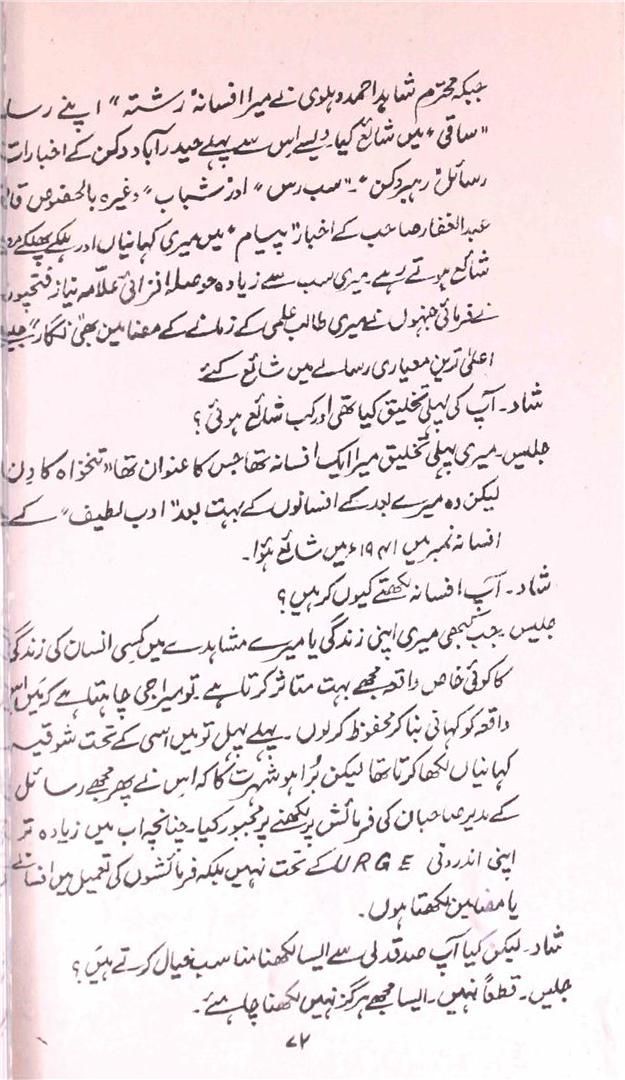 جبکہ محترم شاہد احمد دہلوی نے میرا افسانہ "رشتہ" اپنے رسا
"ساقی" میں شائع کیا۔ ویسے اس سے پہلے حیدرآباد دکن کے اخبارات
رسائل "رہبر دکن"۔ "سب رس" اور "شباب" وغیرہ بالخصوص قا
عبدالغفار صاحب کے اخبار "پیام" میں میری کہانیاں اور ہلکے پھلکے
شائع ہوتے رہے۔ میری سب سے زیادہ حوصلہ افزائی علّامہ نیاز فتحپور
نے فرمائی جنہوں نے میری طالب علمی کے زمانے کے مضامین بھی "نگار" جیسے
اعلیٰ ترین معیاری رسالے میں شائع کئے
شاد۔ آپ کی پہلی تخلیق کیا تھی اور کب شائع ہوئی؟
جلیس۔ میری پہلی تخلیق میرا ایک افسانہ تھا جس کا عنوان تھا "تنخواہ کا دن
لیکن وہ میرے بعد کے افسانوں کے بہت بعد "ادب لطیف" کے
افسانہ نمبر میں ۱۹۴۱ء میں شائع ہوٗا۔
شاد۔ آپ افسانہ لکھتے کیوں کر ہیں؟
جلیس۔ جب کبھی میری اپنی زندگی یا میرے مشاہدے میں کسی انسان کی زندگی
کا کوئی خاص واقعہ مجھے بہت متاثر کرتا ہے۔ تو میرا جی چاہتا ہے کہ میں اس
واقعہ کو کہانی بنا کر محفوظ کر لوں۔ پہلے پہل تو میں اسی کے تحت شوقیہ
کہانیاں لکھا کرتا تھا لیکن بُرا ہو شہرت کا کہ اس نے پھر مجھے رسائل
کے مدیر صاحبان کی فرمائش پر لکھنے پر مجبور کیا۔ چنانچہ اب میں زیادہ تر
اپنی اندرونی URGE کے تحت نہیں بلکہ فرمائشوں کی تعمیل میں افسانے
یا مضامین لکھتا ہوں۔
شاد۔ لیکن کیا آپ صدق دلی سے ایسا لکھنا مناسب خیال کرتے ہیں؟
جلیس۔ قطعاً نہیں۔ ایسا مجھے ہرگز نہیں لکھنا چاہئے۔
۷۲